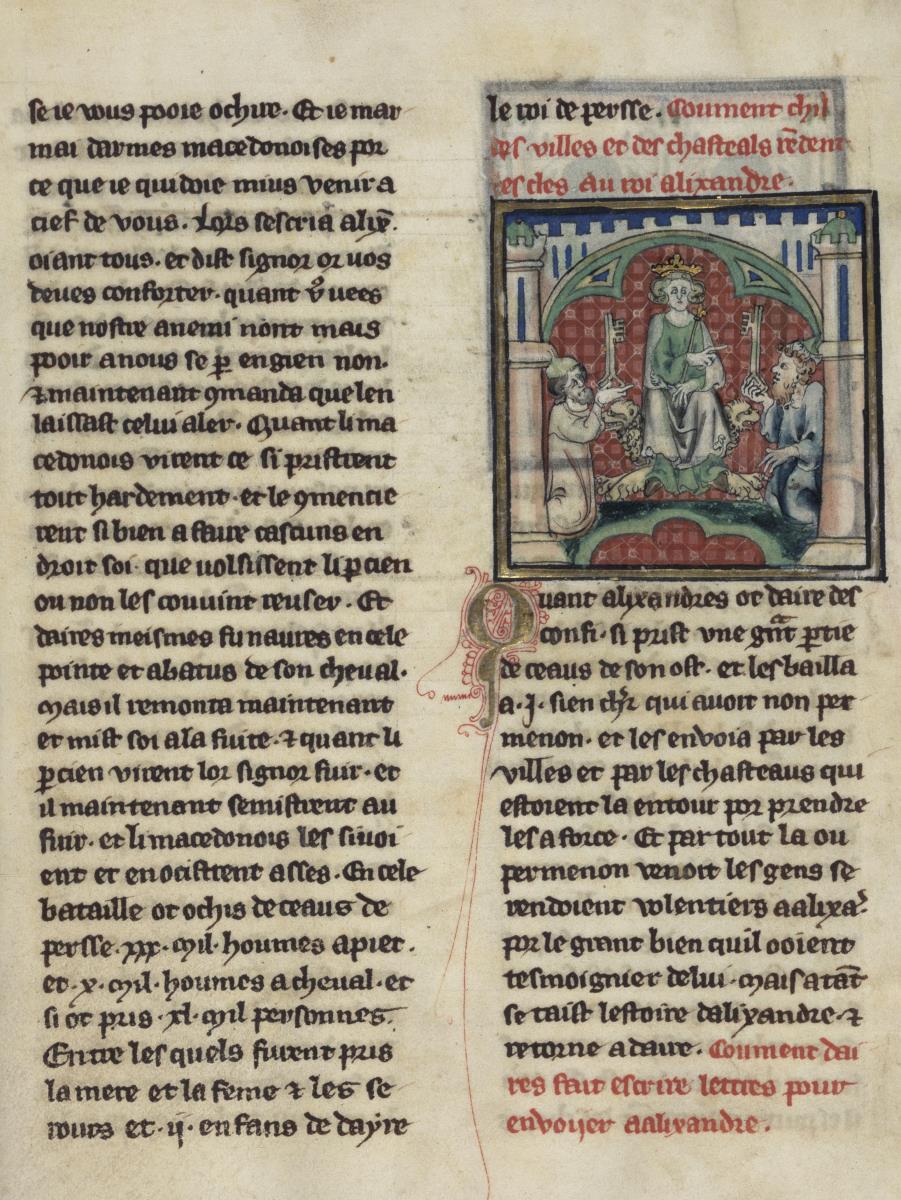 se ie vous pooie ochire. Et ie mar
mai darmes macedonoises por
ce que ie quidoie mius venir a
cief de vous. Lors sescria alix̄.
oiant tous. et dist signor or vos
deues conforter. quant v̊ vees
que nostre anemi nont mais
pooir a nous se ꝑ engien non.
⁊ maintenant ꝯmanda que len
laissast celui aler. Quant li ma
cedonois virent ce si pristrent
tout hardement. et le ꝯmencie
rent si bien a faire cascuns en
droit soi. que uolsissent li ꝑcien
ou non les couuint reuser. Et
daires meismes fu naures en cele
pointe et abatus de son cheual.
Mais il remonta maintenant
et mist soi a la fuite. ⁊ quant li
ꝑcien virent lor signor fuir. et
il maintenant semistrent au
fuir. et li macedonois les siuoi
ent et en ocistrent asses. En cele
bataille ot ochis de ceaus de
persse. xxx. Mil. houmes a piet.
et. x. Mil. houmes a cheual. et
si ot pris. xl. Mil personnes.
Entre les quels furent pris
la mere et la feme ⁊ les se
rours et. ij. enfans de dayre
le roi de persse. Coument chil
des villes et des chasteals rēdent
les cles au roi alixandre.
Quant alixandres ot daire des
confi. si prist vne gᵃnt ꝑtie
de ceaus de son ost. et les bailla
a. J. sien chr̄ qui auoit non per
menon. et les enuoia par les
villes et par les chasteaus qui
estoient la entour por prendre
les a force. Et par tout la ou
permenon venoit les gens se
rendoient volentiers a alixaʳ.
por le grant bien quil ooient
tesmoignier de lui. Mais a tāt
se taist lestoire dalixandre. ⁊
retorne a daire. Coument dai
res fait escrire lettres pour
envoyer a alixandre.